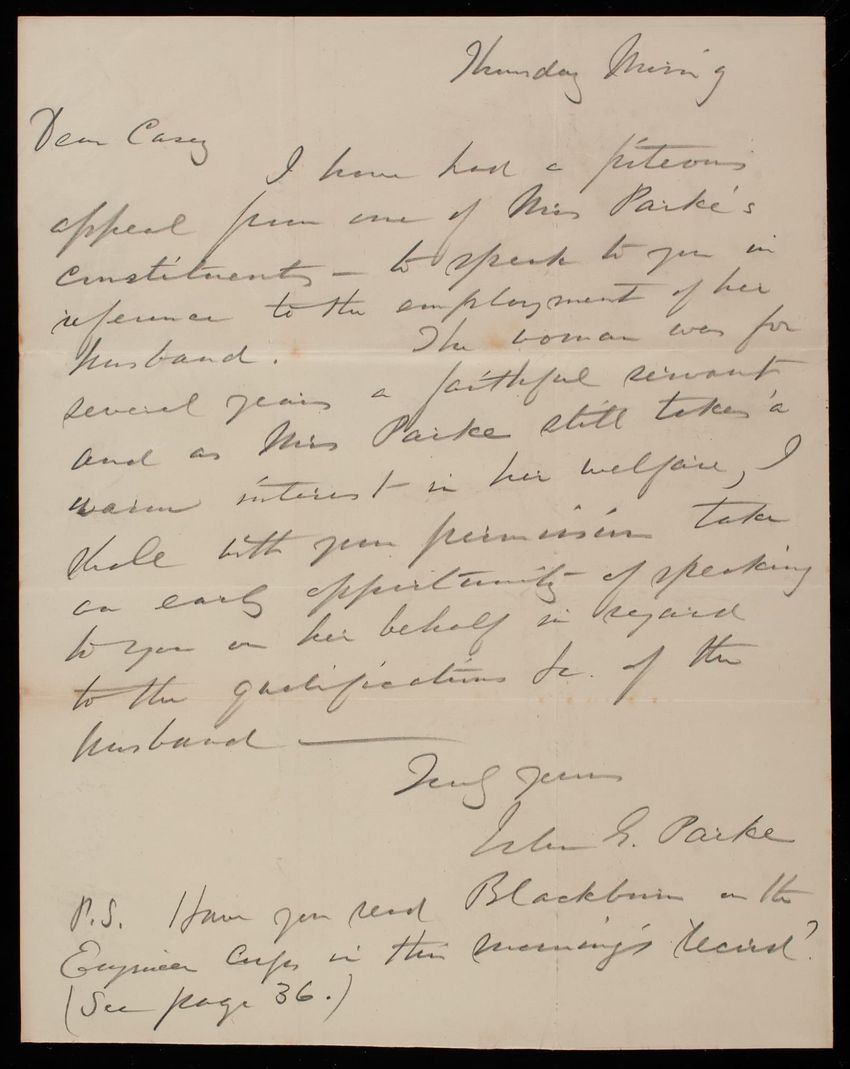 Thursday Morning
Dear Casey
I have had a piteous
appeal from one of Mrs Parke's
constituents – to speak to you in
reference to the employment of her
husband. The woman was for
several years a faithful servant
and as Mrs Parke still takes a
warm interest in her welfare, I
shall with your permission take
an early opportunity of speaking
to you on her behalf in regard
to the qualifications &c. of the
husband —
Truly yours
John G. Parke
P.S. Have you read Blackburn on the
Engineer Corps in this morning's Record?
(See page 36.)